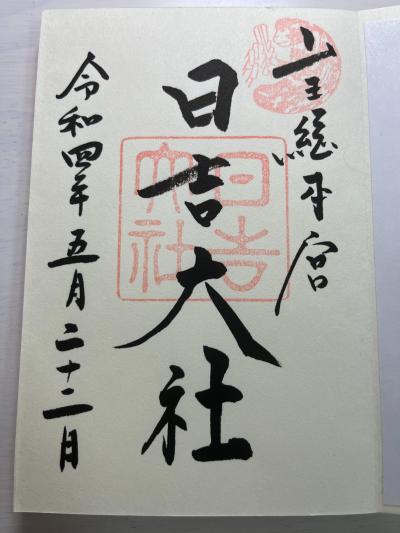 山王総本宮
日吉大社
日吉
大社
令和四年五月二十二日